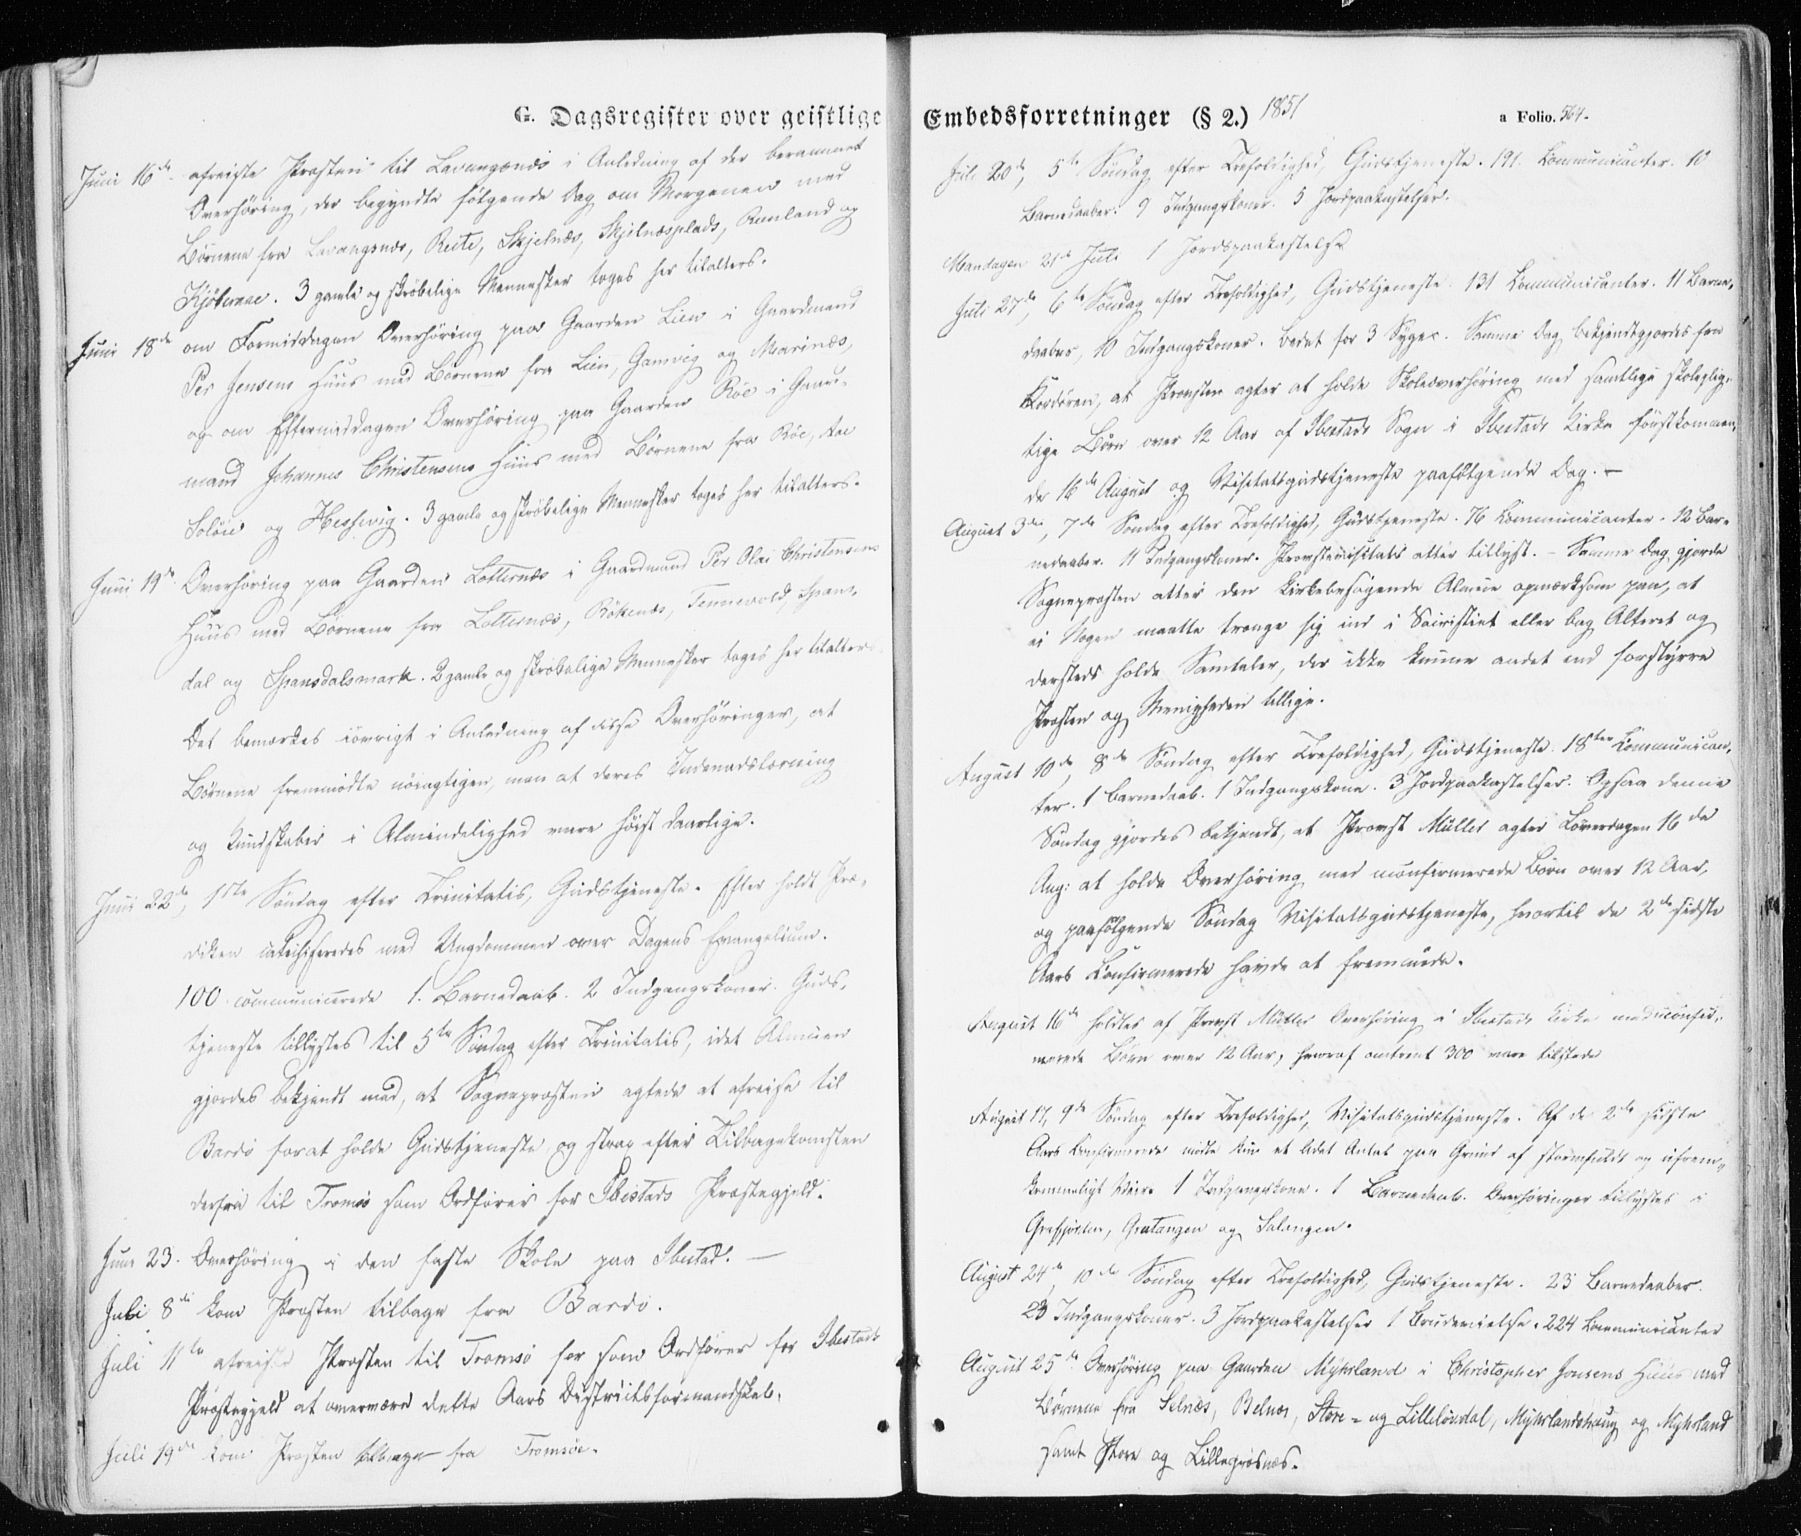 G. Dagsregister over geistlige
Juni 16de afreiste Præsten til Lavangsnæs i Anledning af der berammet
Overhøring, der begyndte følgende Dag om Morgenen med
Børnene fra Lavangsnæs, Reite, Skjelnæs, Skjelnæsplads, og
3 gamle og skrøbelige Mennesker toges her tilalters.
Juni 18de om Formiddagen Overhøring paa Gaarden Lien i Gaardmand
Per Jensens Huus med Børnene fra Lien, Gamvig og Marinæs,
og om Eftermiddagen Overhøring paa Gaarden Röe i Gaard-
mand Johannes Christensens Huus med Børnene fra Röe, Aae
Soløi og Hessevig. 3 gamle og skrøbelige Mennesker toges her tilalters.
Juni 19de Overhøring paa Gaarden Lotternæs i Gaardmand Per Olai Christensens
Huus med Børnene fra Lotternæs, Rökenæs, Tennevold, Spans-
dal og Spansdalsmark. 2 gamle og skrøbelige Mennesker toges her tilalters.
Det bemærkes iøvrigt i Anledning af disse Overhøringer, at
Børnene fremmødte nøiagtigen, men at deres Indenadslæsning
og Kundskaber i Almindelighed vare høist daarlige.
Juni 22de, 1ste Søndag efter Trinitatis, Gudstjeneste. Efter holdt Præ-
diken catechiseredes med Ungdommen over Dagens Evangelium.
100 communicerede 1. Barnedaab. 2 Indgangskoner. Guds-
tjeneste tillystes til 5te Søndag efter Trinitatis, idet Almuen
gjordes bekjendt med, at Sognepræsten agtede at afreise til
Bardo forat holde Gudstjeneste og strax efter Tilbagekomsten
derfra til Tromsø som Ordfører for Ibestads Præstegjeld.
Juni 23. Overhøring i den faste Skole paa Ibestad. —
Juli 8de kom Præsten tilbage fra Bardo.
Juli 11te afreiste Præsten til Tromsø for som Ordfører for Ibestads
Præstegjeld at overvære dette Aars Districtsformandskab.
Juli 19de kom Præsten tilbage fra Tromsøe.
Embedsforretninger (§ 2.) 1851
a Folio. 564.
Juli 20de, 5te Søndag efter Trefoldighed, Gudstjeneste. 191. Communicanter. 10
Barnedaaber. 9 Indgangskoner. 5 Jordpaakastelser.
Mandagen 21de Juli 1 Jordspaakastelse
Juli 27de, 6te Søndag efter Trefoldighed, Gudstjeneste. 131 Communicanter. 11 Barne-
daaber, 10 Indgangskoner. bedet for 3 Syge. Samme Dag bekjendtgjordes fra
Kordøren, at Provsten agter at holde Skoleoverhøring med samtlige skoleplig-
tige Børn over 12 Aar af Ibestads Sogn i Ibestads Kirke førstkommen-
de 16de August og Visitatsgudstjeneste paafølgende Dag. —
August 3de, 7de Søndag efter Trefoldighed, Gudstjeneste. 76 Communicanter. 12 Bar-
nedaaber. 11 Indgangskoner. Provstevisitats atter tillyst. — Samme Dag gjorde
Sognepræsten atter den kirkebesøgende Almue opmærksom paa, at
ei Nogen maatte trænge sig ind i Sacristiet eller bag Alteret og
dersteds holde Samtaler, der ikke kunne andet end forstyrre
Præsten og Menigheden tillige.
August 10de, 8de Søndag efter Trefoldighed, Gudstjeneste. 18ten Communican-
ter. 1 Barnedaab. 1 Indgangskone. 3 Jordpaakastelser. Ogsaa denne
Søndag gjordes bekjendt, at Provst Müller agter Løverdagen 16de
Aug: at holde Overhøring med uconfirmerede Børn over 12 Aar,
og paafølgende Søndag Visitatsgudstjeneste, hvortil de 2de sidste
Aars Confirmerede havde at fremmøde.
August 16de holdtes af Provst Müller Overhøring i Ibestads Kirke med uconfir-
merede Børn over 12 Aar, hvoraf omtrent 300 vare tilstede
August 17, 9de Søndag efter Trefoldighed, Visitatsgudstjeneste. Af de 2de sidste
Aars Confirmerede mødte kun et lidet Antal paa Grund af stormfuldt og ufrem-
kommeligt Veir. 1 Indgangskone. 1 Barnedaab. Overhøringer tillystes i
Grovfjorden, Gratangen og Salangen.
August 24de, 10de Søndag efter Trefoldighed, Gudstjeneste. 23 Barnedaaber.
23 Indgangskoner. 3 Jordpaakastelser 1 Brudevielse. 224 Communicanter
August 25de Overhøring paa Gaarden Myhrland i Christopher Jonsens Huus med
Børnene fra Selnæs, Belnæs, Store- og Lilleløvdal, Myhrlandshaug og Myhrland
samt Store og Lillegrøsnæs.